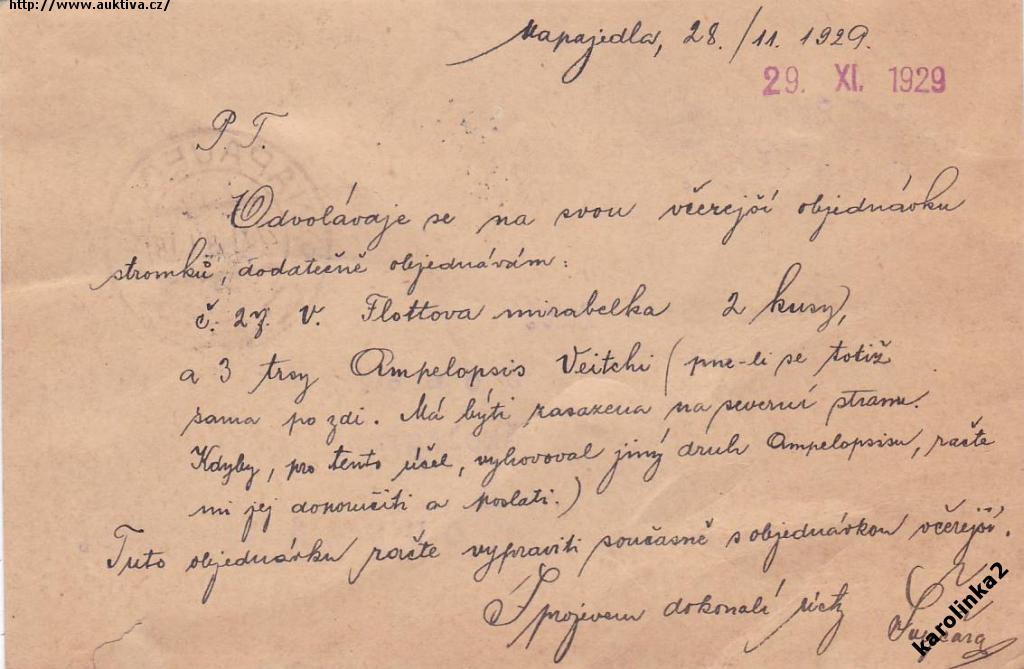 http://www.auktiva.cz/
Napajedla, 28./11. 1929.
29. XI. 1929
P. T.
Odvolávaje se na svou včerejší objednávku
stromků, dodatečně objednávám:
č. 27. V. Flottova mirabelka 2 kusy,
a 3 trsy Ampelopsis Veitchi (pne-li se totiž
sama po zdi. Má býti zasazena na severní stranu.
Kdyby, pro tento účel, vyhovoval jiný druh Ampelopsisu, račte
mi jej doporučiti a poslati.)
Tuto objednávku račte vypraviti současně s objednávkou včerejší.
S projevem dokonalé úcty
karolinka2